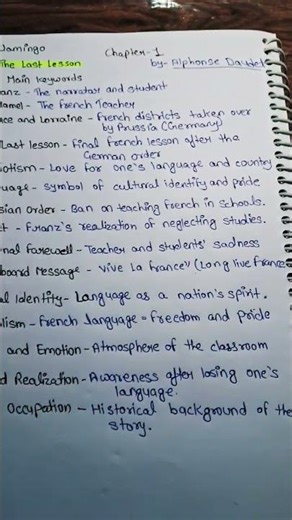 lamingo Chapter-1
The Last Lesson by- Alphonse Daudet
Main Keywords
anz - The narrator and student
Hamel - The French Teacher
ace and Lorraine - French districts taken over
by Prussia (Germany)
Last lesson - Final French lesson after the
German order
iotism - Love for one's language and country
uage - symbol of cultural identity and pride
sian Order - Ban on teaching French in schools.
t - Franz's realization of neglecting studies.
nal Farewell - Teacher and students' sadness
board Message - "Vive La France" (Long live France
al Identity - Language as a nation's spirit.
lism - French language = freedom and pride
and Emotion - Atmosphere of the classroom
d Realization - Awareness after losing one's
language.
Occupation - Historical background of the
story.